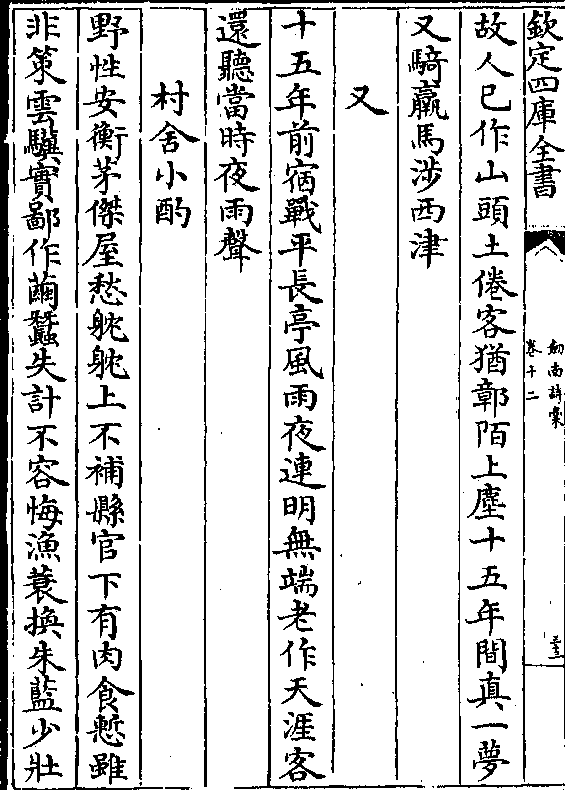 欽定四庫全書
劍南詩稾
卷十二
故人已作山頭土倦客猶鄣陌上塵十五年間真一夢
又騎羸馬涉西津
又
十五年前宿戰平長亭風雨夜連明無端老作天涯客
還聽當時夜雨聲
村舍小酌
野性安衡茅傑屋愁躭躭上不補縣官下有肉食慙雖
非策雲驥實鄙作繭蠶失計不容悔漁蓑換朱藍少壯